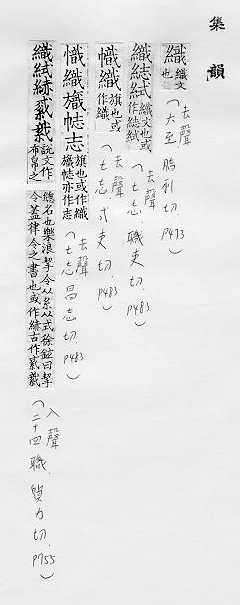 集韻
織 織文也
(去聲
六至 脂利切. P473)
織綕絘 織文也或作綕絘
(去聲
七志. 職吏切. P483)
幟織 旗也或作織
(去聲
七志. 式吏切. P483)
幟織旘帜志 旗也或作織旘帜亦作志
(去聲
七志. 昌志切. P483)
說文作布帛之總名也樂浪挈令从糸从式徐鉉曰挈令蓋律令之書也或作
(入聲
二十四職. 質力切. P755)